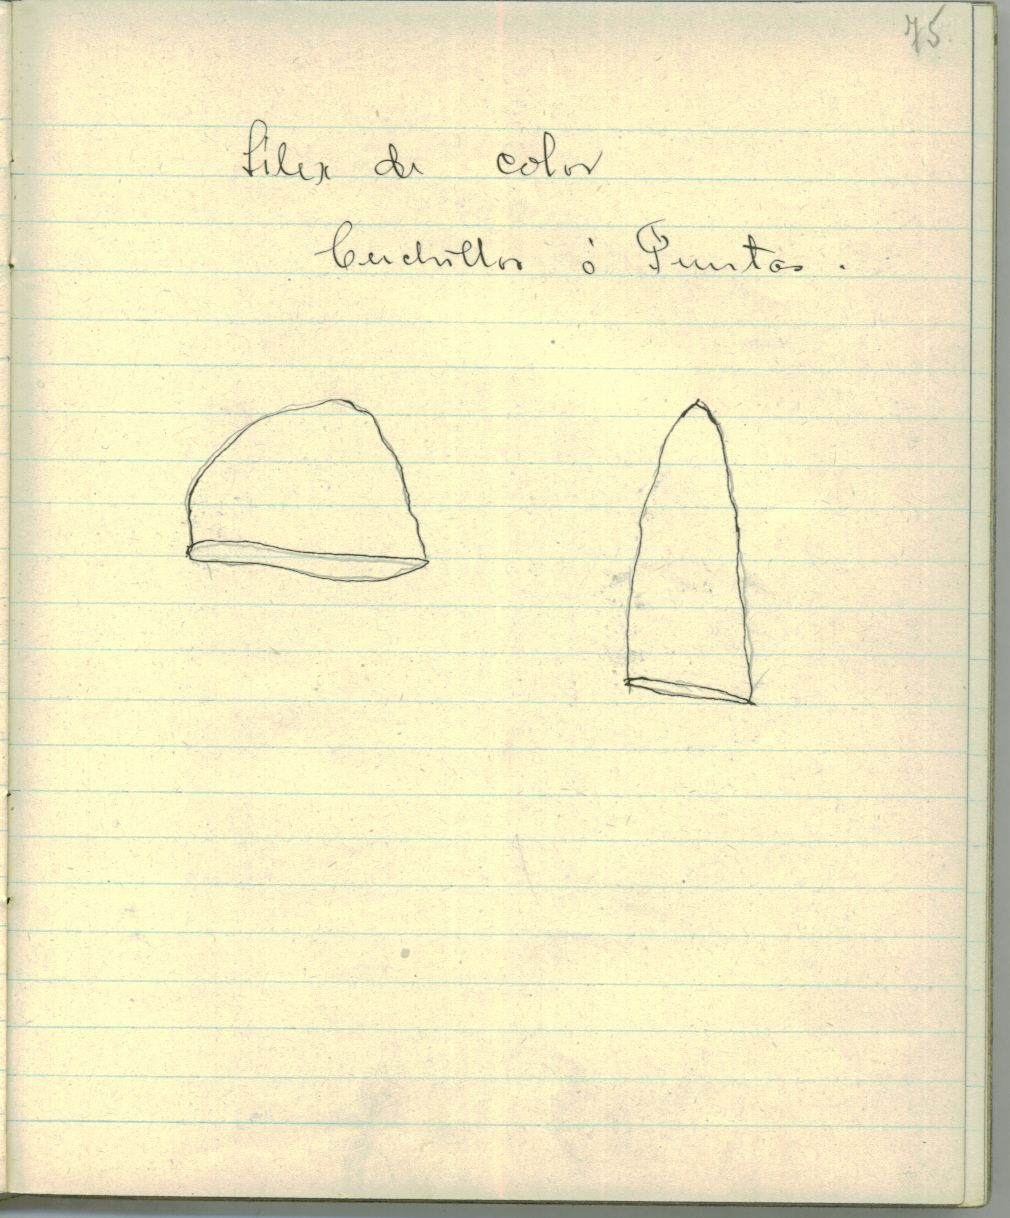 75.
Silex de color
Cuchillos ó Puntas.